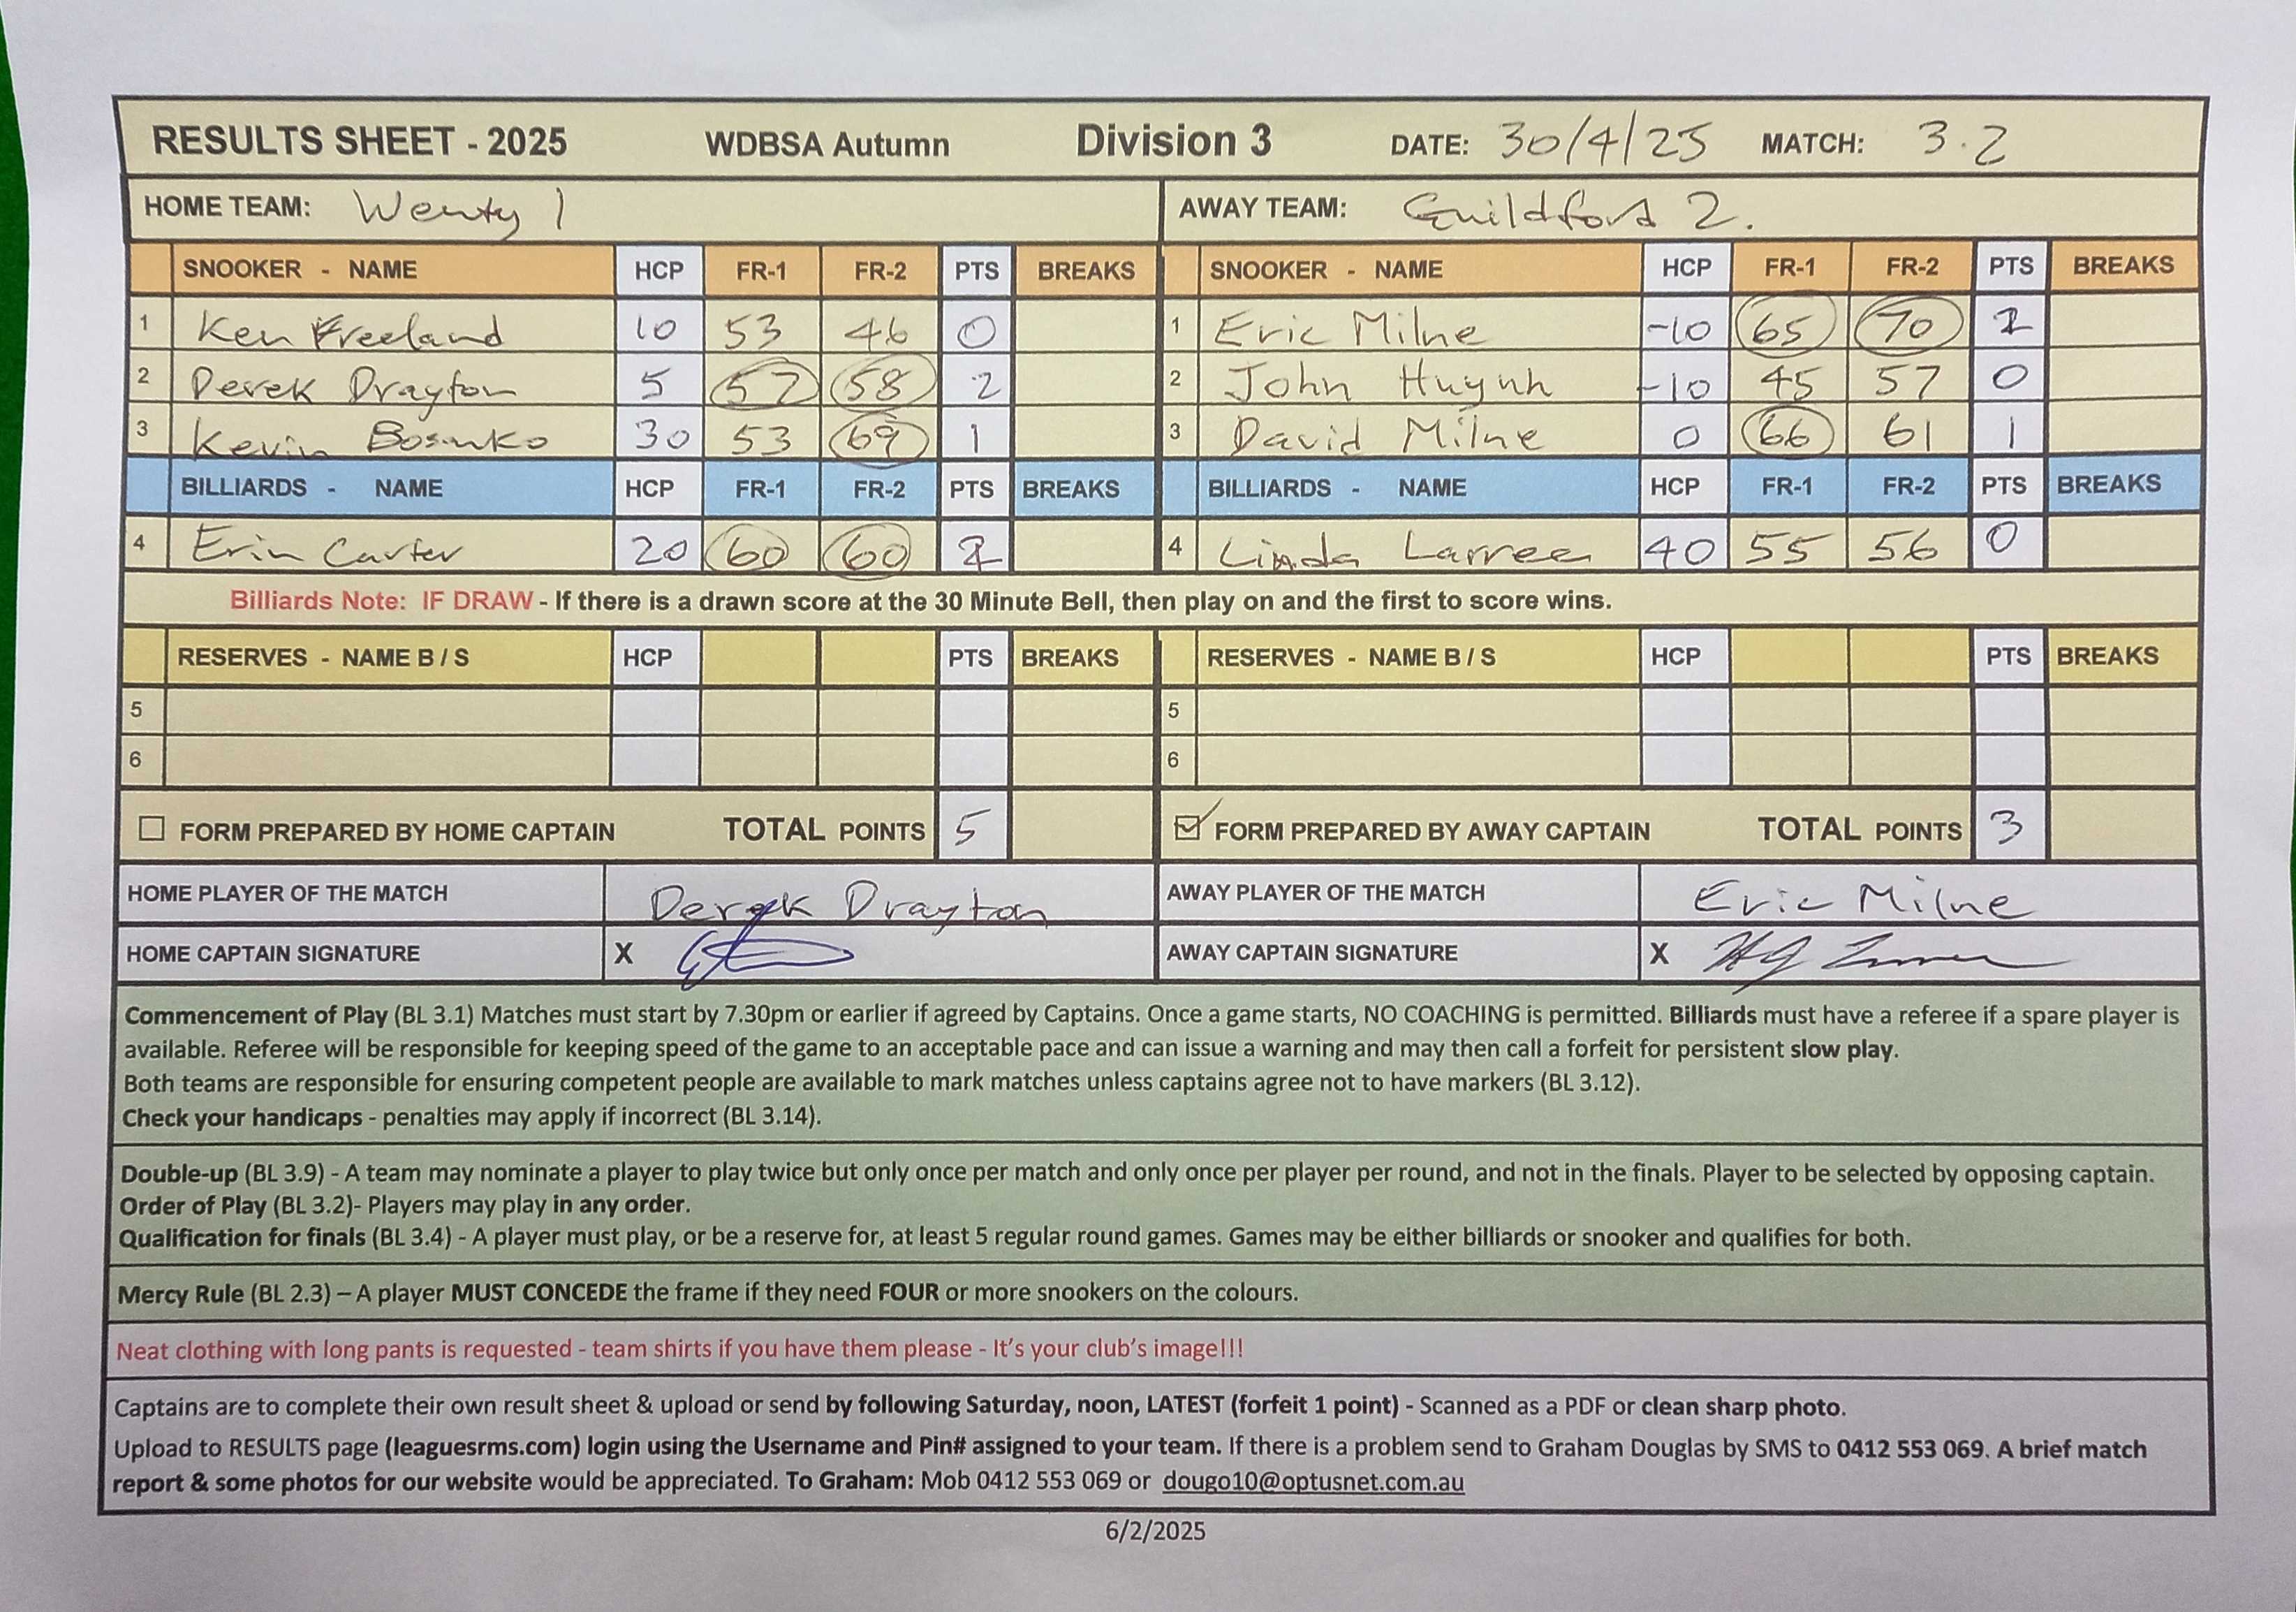 RESULTS SHEET - 2025 WDBSA Autumn Division 3 DATE: 30/4/25 MATCH: 3.2
HOME TEAM: Wenty 1 AWAY TEAM: Guildford 2.
SNOOKER - NAME HCP FR-1 FR-2 PTS BREAKS SNOOKER - NAME HCP FR-1 FR-2 PTS BREAKS
1 Ken Freeland 10 53 46 0 1 Eric Milne -10 65 70 2
2 Derek Drayton 5 57 58 2 2 John Huynh -10 45 57 0
3 Kevin Bosnko 30 53 69 1 3 David Milne 0 66 61 1
BILLIARDS - NAME HCP FR-1 FR-2 PTS BREAKS BILLIARDS - NAME HCP FR-1 FR-2 PTS BREAKS
4 Erin Carter 20 60 60 2 4 Linda Larree 40 55 56 0
Billiards Note: IF DRAW - If there is a drawn score at the 30 Minute Bell, then play on and the first to score wins.
RESERVES - NAME B / S HCP PTS BREAKS RESERVES - NAME B / S HCP PTS BREAKS
5 5
6 6
FORM PREPARED BY HOME CAPTAIN TOTAL POINTS 5 FORM PREPARED BY AWAY CAPTAIN TOTAL POINTS 3
HOME PLAYER OF THE MATCH Derek Drayton AWAY PLAYER OF THE MATCH Eric Milne
HOME CAPTAIN SIGNATURE X AWAY CAPTAIN SIGNATURE X
Commencement of Play (BL 3.1) Matches must start by 7.30pm or earlier if agreed by Captains. Once a game starts, NO COACHING is permitted. Billiards must have a referee if a spare player is
available. Referee will be responsible for keeping speed of the game to an acceptable pace and can issue a warning and may then call a forfeit for persistent slow play.
Both teams are responsible for ensuring competent people are available to mark matches unless captains agree not to have markers (BL 3.12).
Check your handicaps - penalties may apply if incorrect (BL 3.14).
Double-up (BL 3.9) - A team may nominate a player to play twice but only once per match and only once per player per round, and not in the finals. Player to be selected by opposing captain.
Order of Play (BL 3.2)- Players may play in any order.
Qualification for finals (BL 3.4) - A player must play, or be a reserve for, at least 5 regular round games. Games may be either billiards or snooker and qualifies for both.
Mercy Rule (BL 2.3) – A player MUST CONCEDE the frame if they need FOUR or more snookers on the colours.
Neat clothing with long pants is requested - team shirts if you have them please - It's your club's image!!!
Captains are to complete their own result sheet & upload or send by following Saturday, noon, LATEST (forfeit 1 point) - Scanned as a PDF or clean sharp photo.
Upload to RESULTS page (leaguesrms.com) login using the Username and Pin# assigned to your team. If there is a problem send to Graham Douglas by SMS to 0412 553 069. A brief match
report & some photos for our website would be appreciated. To Graham: Mob 0412 553 069 or dougo10@optusnet.com.au
6/2/2025